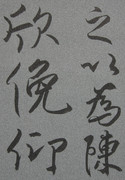 之以為陳
欣俛仰